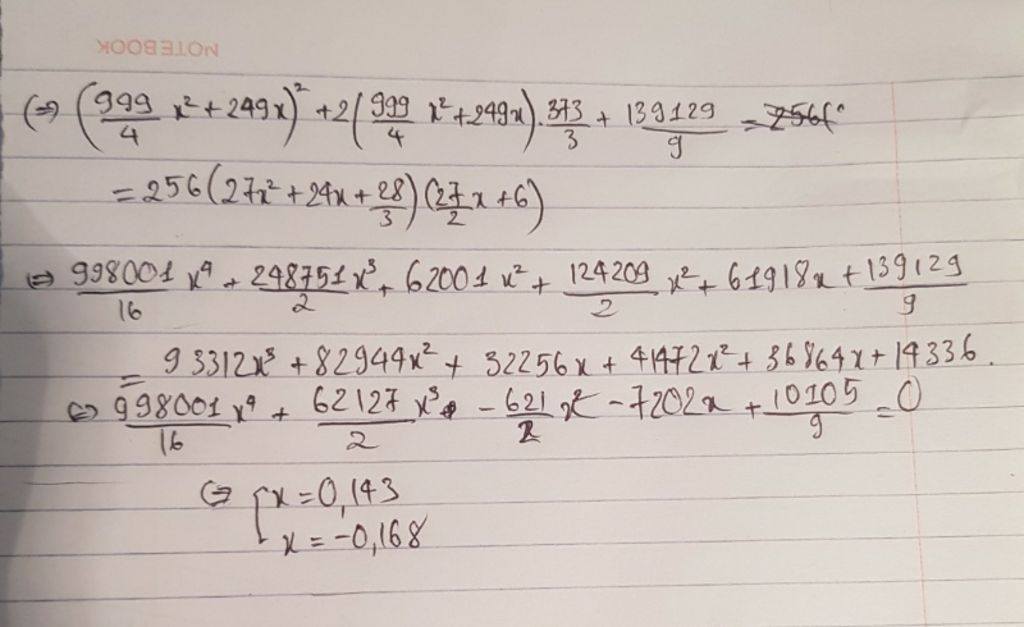 NOTEBOOK
(⇒) (999/4 x² + 249x)² + 2(999/4 x² + 249x) . 373/3 + 139129/9 = 256(
= 256(27x² + 24x + 28/3)(27/2 x + 6)
⇔ 998001/16 x⁴ + 248751/2 x³ + 62001x² + 124209/2 x² + 61918x + 139129/9
= 93312x³ + 82944x² + 32256x + 41472x² + 36864x + 14336.
⇔ 998001/16 x⁴ + 62127/2 x³ - 621/2 x² - 7202x + 10105/9 = 0
⇔ [x = 0,143
x = -0,168